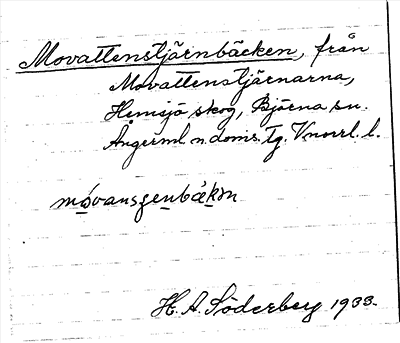 Movattenstjärnbäcken, från
Movattenstjärnarna,
Hemsjö skog, Björna sn.
Ångerml n. doms. tg. Vnorrl. l.
H. A. Söderberg 1933.